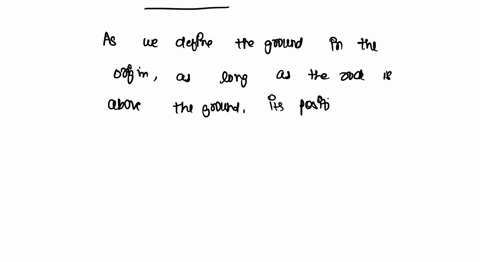 As we define the ground in the
origin, as long as the rock is
above the ground, its positi